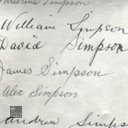 Simpson
William Simpson
David Simpson
James Simpson
Alex Simpson
Andrew Simps